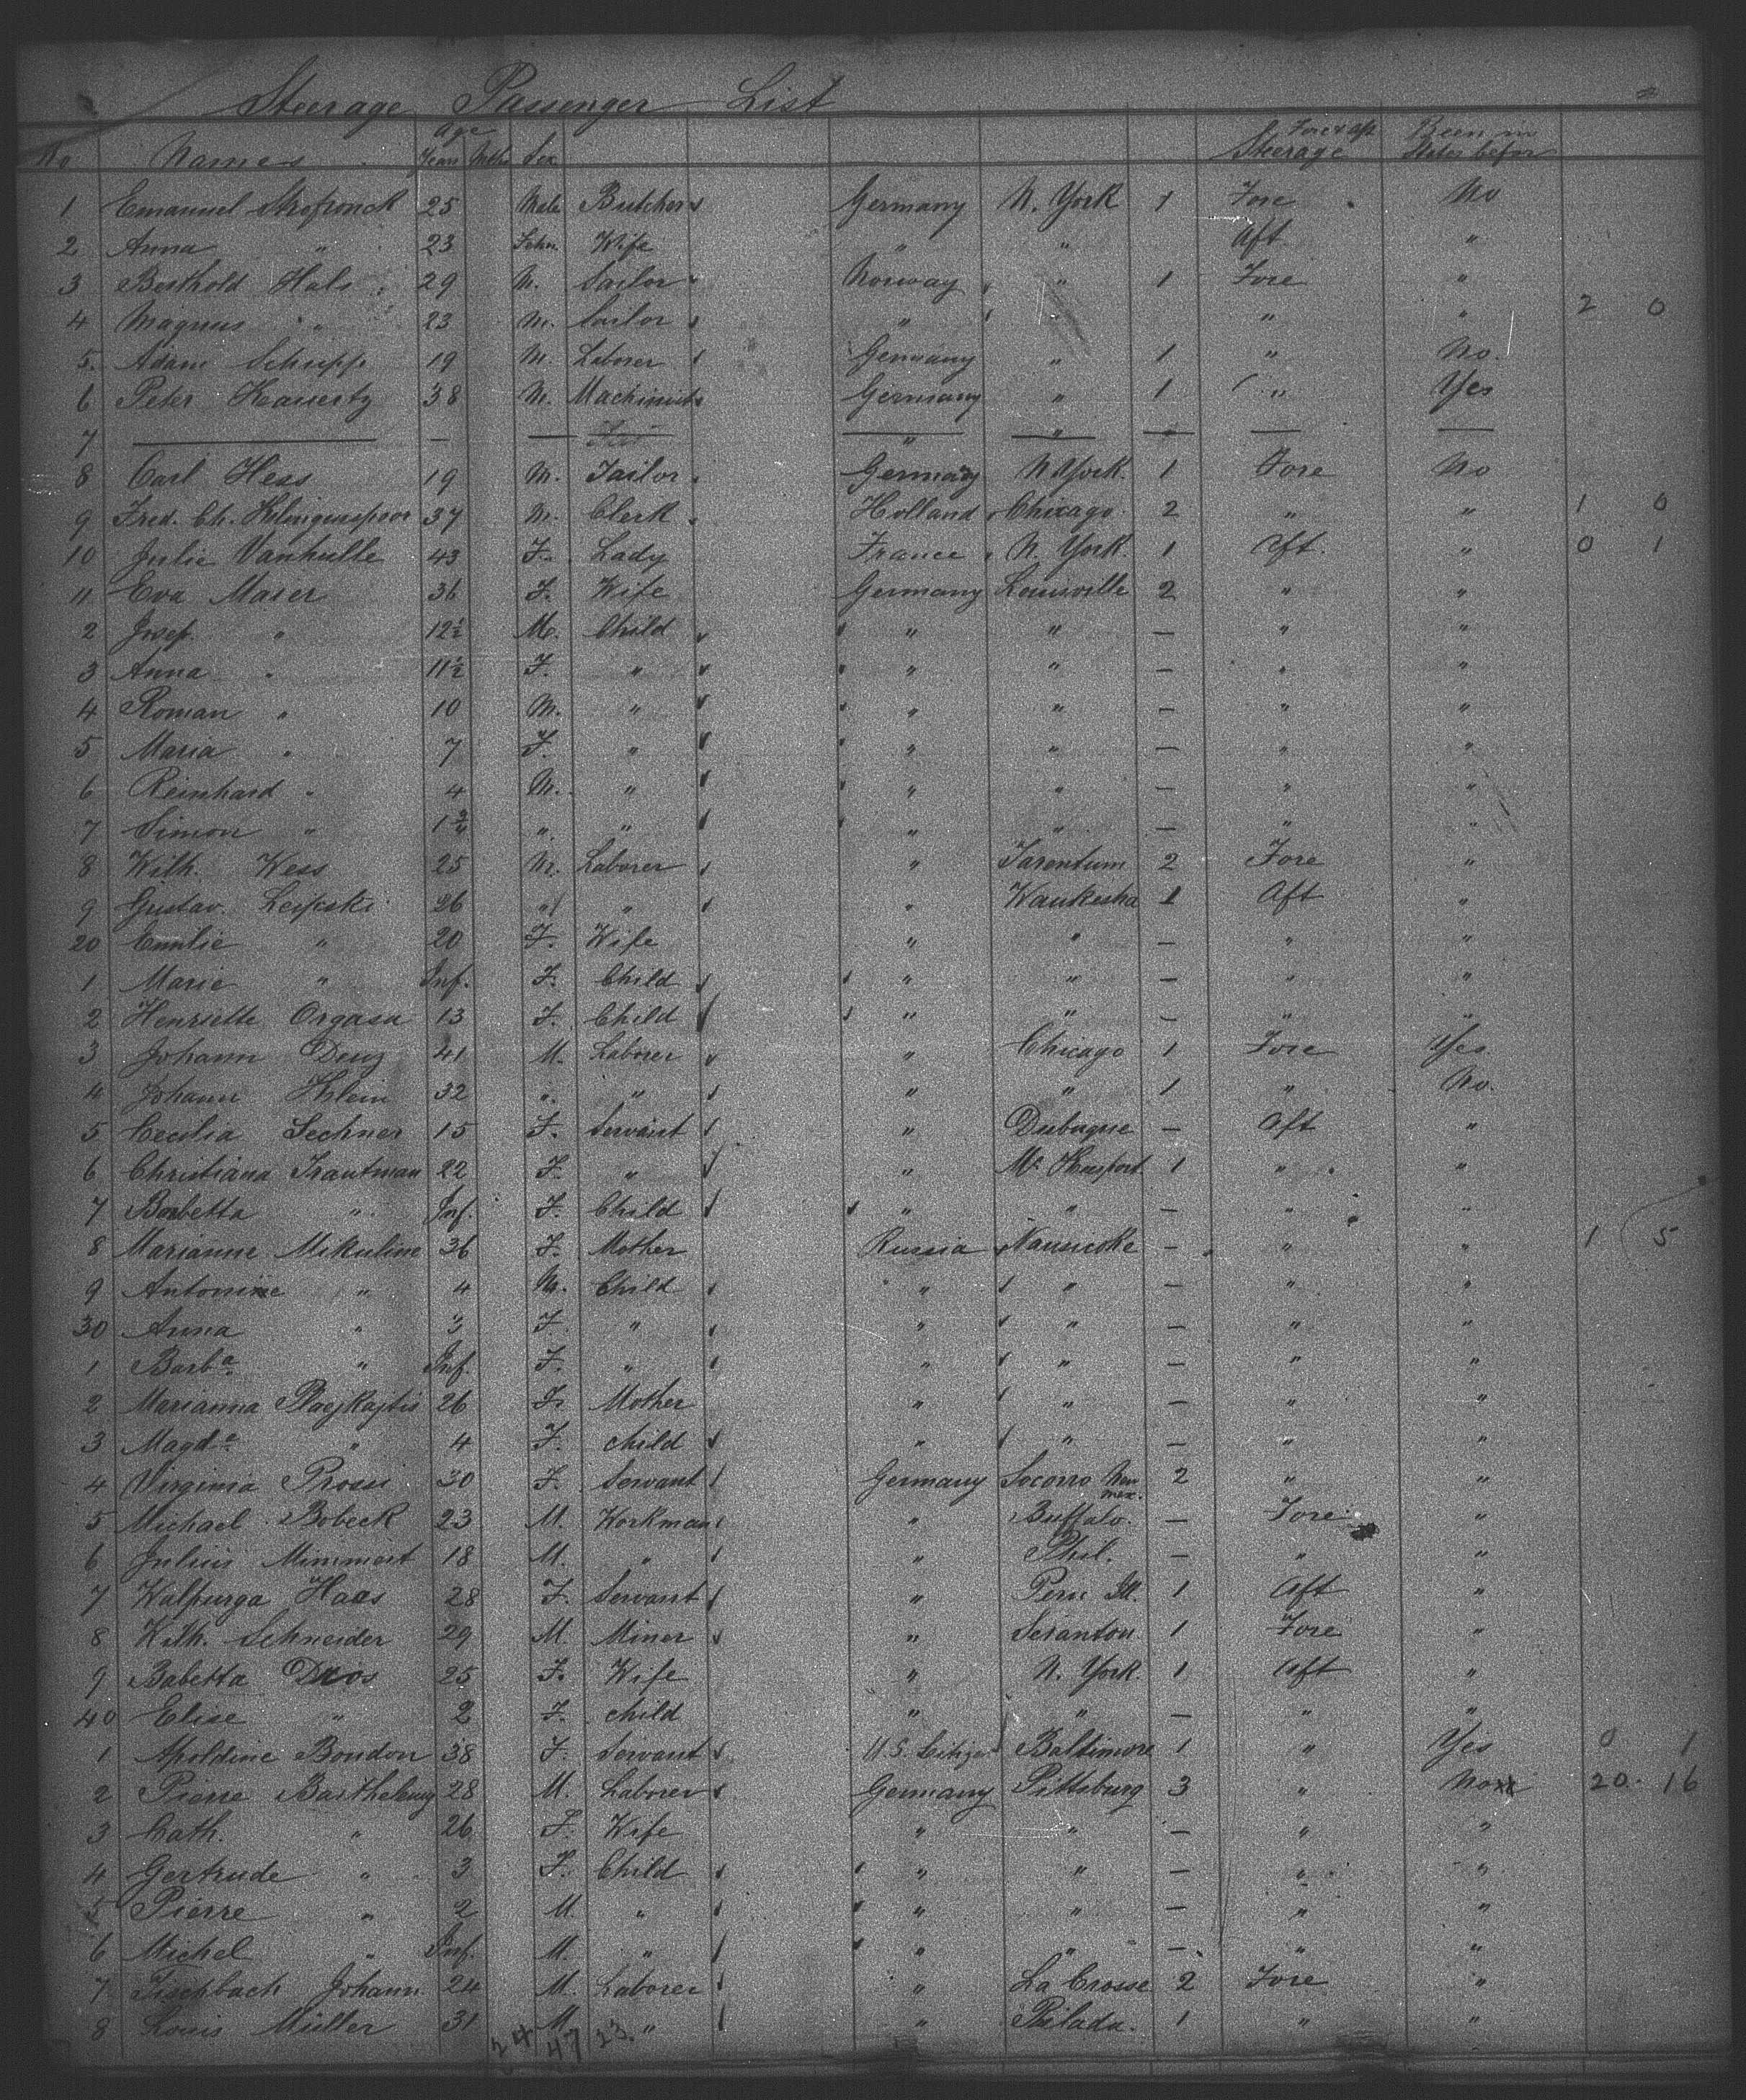 Steerage Passenger List
Age Fore & Aft Been in
No. Names Years Mths Sex Steerage States before
1 Emanuel 25 Male Butcher Germany N. York 1 Fore No
2 Anna " 23 Fem. Wife " " Aft "
3 Berthold Hals 29 M. Sailor Norway " 1 Fore "
4 Magnus " 23 M. Sailor " " " " 2 0
5. Adam Schupp 19 M. Laborer Germany " 1 " No.
6 Peter Hauertz 38 M. Machinist Germany " 1 " Yes
7 — — — — " — " — — —
8 Carl Hess 19 M. Tailor Germany N York. 1 Fore No
9 Fred. Ch. Klinguspoor 37 M. Clerk Holland Chicago. 2 " " 1 0
10 Julie Vanhulle 43 F. Lady France N. York. 1 Aft. " 0 1
11 Eva Maier 36 F. Wife Germany Louisville 2 " "
2 Josep. " 12½ M. Child " " — " "
3 Anna " 11½ F. " " " — " "
4 Roman " 10 M. " " " — " "
5 Maria " 7 F. " " " — " "
6 Reinhard " 4 M. " " " — " "
7 Simon " 1¾ " " " " — " "
8 Wilh. Wess 25 M. Laborer " Tarentum 2 Fore "
9 Gustav. 26 " " " Waukesha 1 Aft "
20 Emilie " 20 F. Wife " " — " "
1 Marie " Inf. F. Child " " — " "
2 Henriette Orgasa 13 F. Child " " — " "
3 Johann Denz 41 M. Laborer " Chicago 1 Fore Yes.
4 Johann Klein 32 " " " " 1 " No.
5 Cecilia Lechner 15 F. Servant " Dubuque — Aft "
6 Christiana Trautman 22 F. " " Mc Keesport 1 " "
7 Barbetta " Inf. F. Child " " — " "
8 Marianne Mikuline 36 F. Mother Russia Nanticoke — " " 1 5
9 Antonine " 4 M. Child " " — " "
30 Anna " 3 F. " " " — " "
1 Barbª. " Inf. F. " " " — " "
2 Marianna 26 F. Mother " " — " "
3 Magdª. " 4 F. child " " — " "
4 Virginia Prossi 30 F. Servant Germany Socorro New Mex. 2 " "
5 Michael Bobeck 23 M. Workman " Buffalo. — Fore "
6 Julius Mimmert 18 M. " " Phil. — " "
7 Walpurga Haas 28 F. Servant " Peru Ill. 1 Aft "
8 Wilh. Schneider 29 M. Miner " Scranton 1 Fore "
9 Babetta Dros 25 F. Wife " N. York 1 Aft "
40 Elise " 2 F. child " " — " "
1 Apoldine Boudon 38 F. Servant U.S. Citizen Baltimore 1 " Yes 0 1
2 Pierre Barthelemy 28 M. Laborer Germany Pittsburg 3 " No 20. 16
3 Cath. " 26 F. Wife " " — " "
4 Gertrude " 3 F. Child " " — " "
5 Pierre " 2 M. " " " — " "
6 Michel " Inf. M. " " " — " "
7 Fischbach Johann 24 M. Laborer " La Crosse 2 Fore "
8 Louis Müller 31 M. " " Philada. 1 " "
24 47 23.